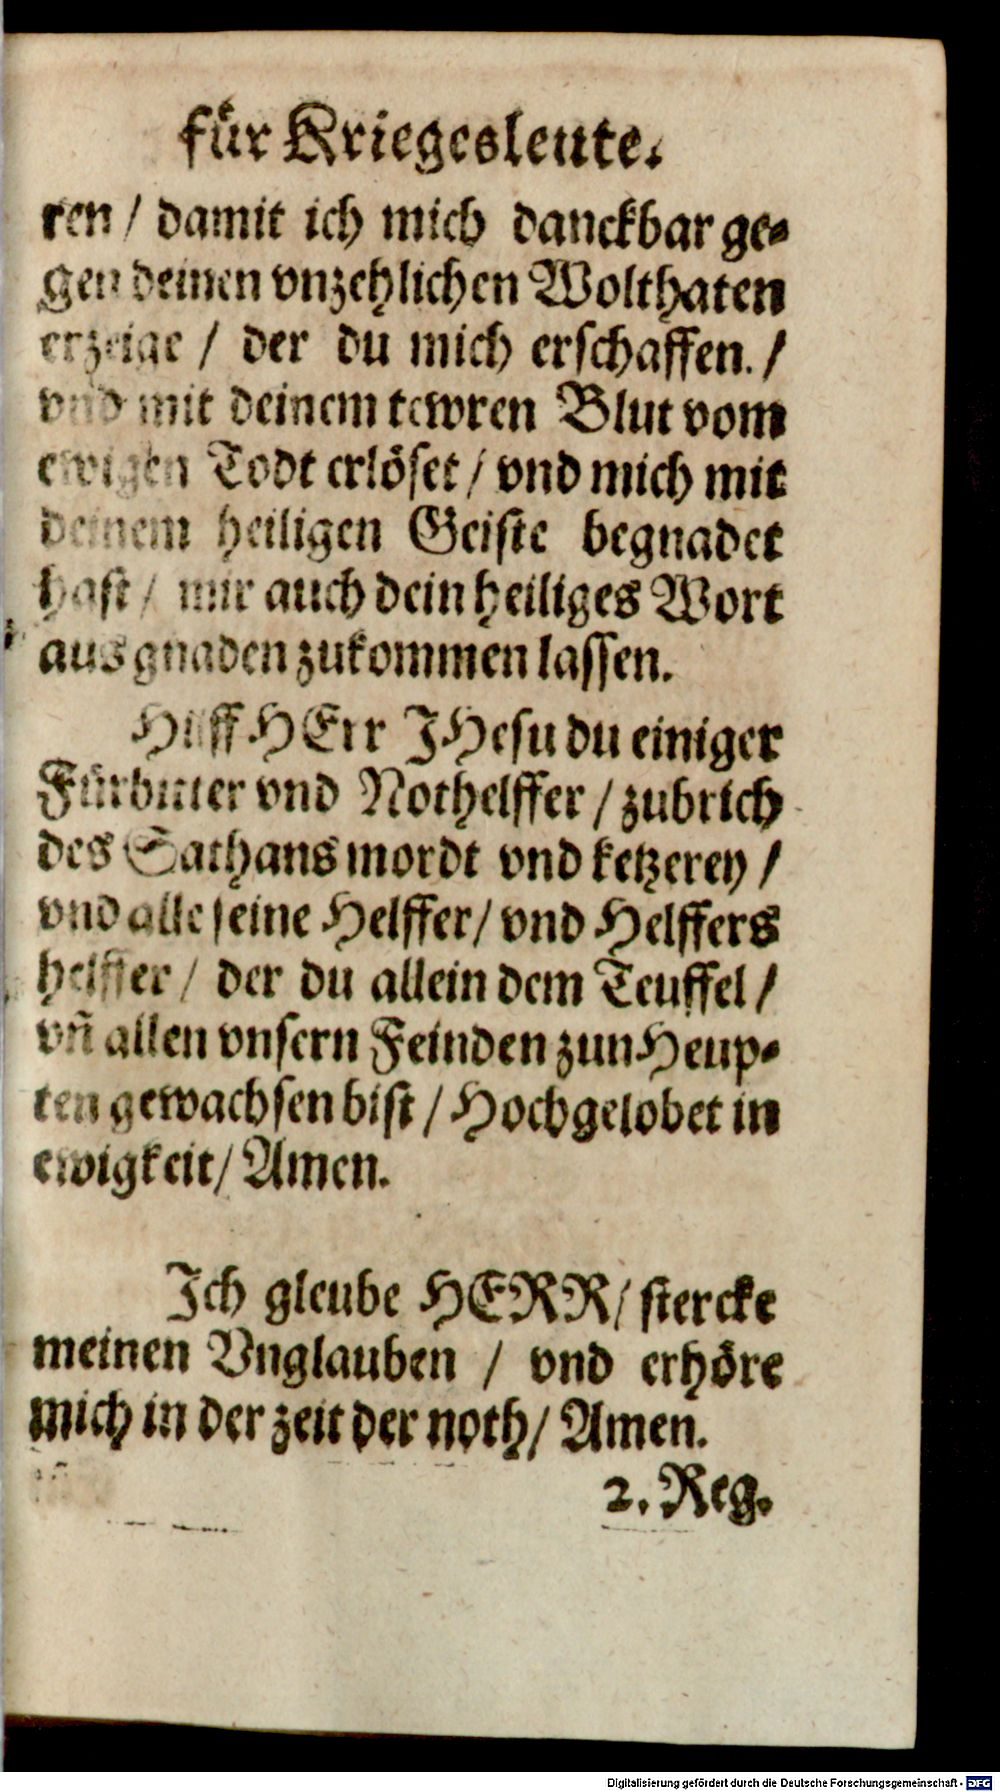 für Kriegesleute.
ren / damit ich mich danckbar ge-
gen deinen vnzehlichen Wolthaten
erzeige / der du mich erschaffen. /
vnd mit deinem tewren Blut vom
ewigen Todt erlöset / vnd mich mit
deinem heiligen Geiste begnadet
hast / mir auch dein heiliges Wort
aus gnaden zukommen lassen.
Hilff HErr JHesu du einiger
Fürbitter vnd Nothelffer / zubrich
des Sathans mordt vnd ketzerey /
vnd alle seine Helffer / vnd Helffers
helffer / der du allein dem Teuffel /
vñ allen vnsern Feinden zun Heup-
ten gewachsen bist / Hochgelobet in
ewigkeit / Amen.
Ich gleube HERR / stercke
meinen Vnglauben / vnd erhöre
mich in der zeit der noth / Amen.
2. Reg.
Digitalisierung gefördert durch die Deutsche Forschungsgemeinschaft - DFG